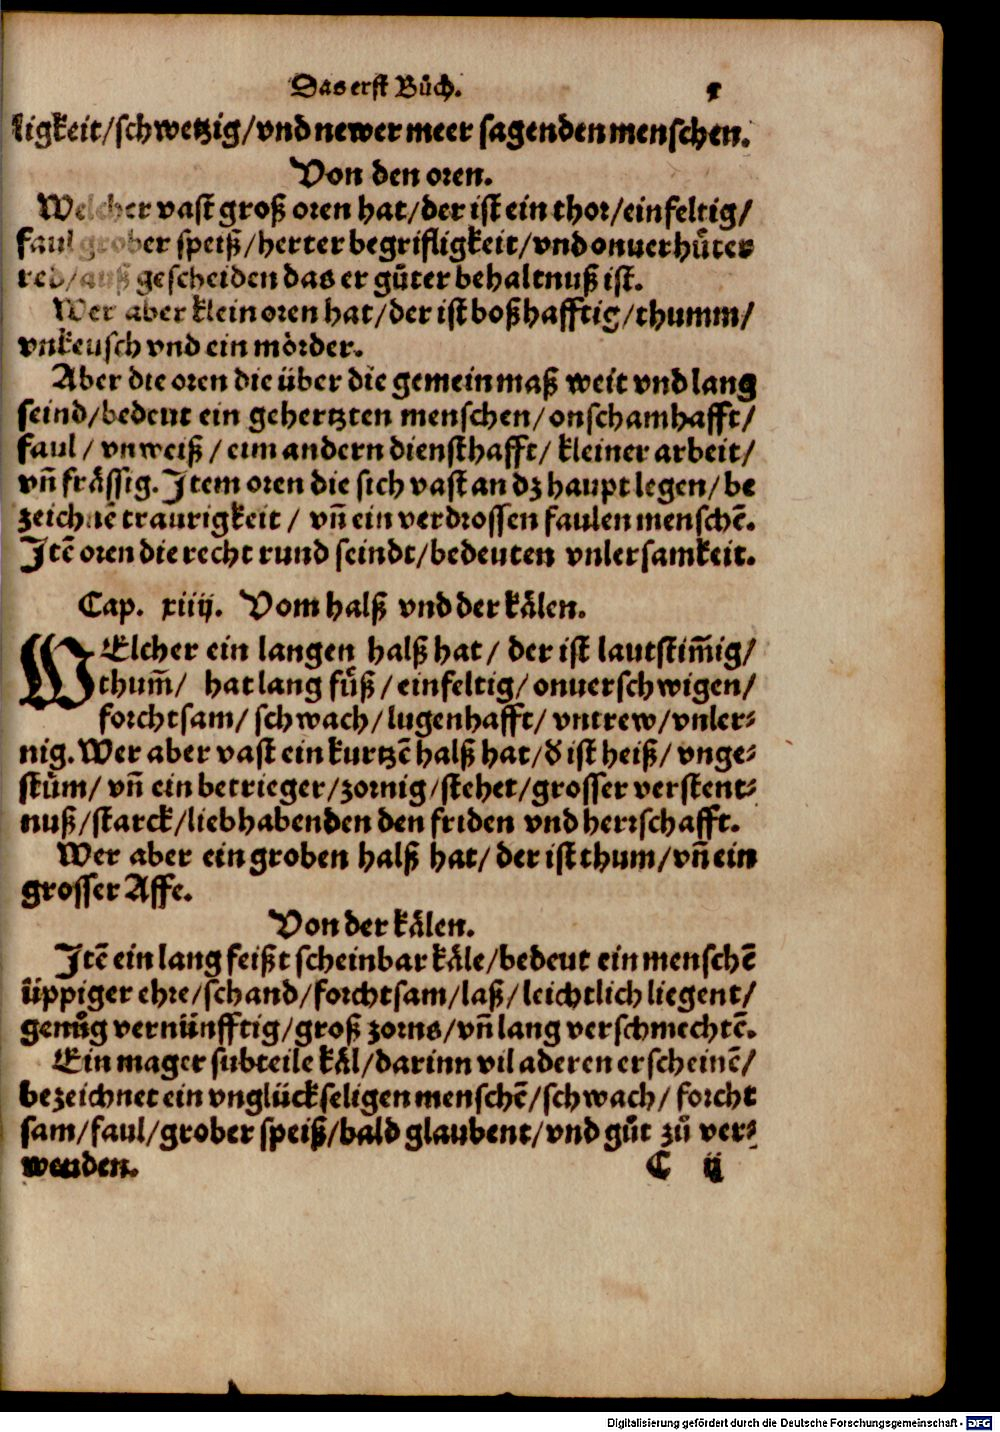 Das erst Bůch. x
ligkeit/schwetzig/vnd newer meer sagenden menschen.
Von den oren.
Welcher vast groß oren hat/der ist ein thor/einfeltig/
faul grober speiß/herter begrifligkeit/vnd onuerhůter
red/auß gescheiden das er gůter behaltnuß ist.
Wer aber klein oren hat/der ist boßhafftig/thumm/
vnkeusch vnd ein mörder.
Aber die oren die über die gemein maß weit vnd lang
seind/bedeut ein gehertzten menschen/onschamhafft/
faul/ vnweiß/ eim andern diensthafft/ kleiner arbeit/
vñ frässig. Item oren die sich vast an dz haupt legen/be
zeichnẽ traurigkeit/ vñ ein verdrossen faulen menschẽ.
Itẽ oren die recht rund seindt/bedeuten vnlersamkeit.
Cap. xiiij. Vom halß vnd der kälen.
WElcher ein langen halß hat/ der ist lautstim̃ig/
thum̃/ hat lang fůß/einfeltig/onuerschwigen/
forchtsam/ schwach/lugenhafft/ vntrew/vnler⸗
nig. Wer aber vast ein kurtzẽ halß hat/ď ist heiß/ vnge⸗
stům/ vñ ein betrieger/zornig/stehet/grosser verstent⸗
nuß/starck/liebhabenden den friden vnd herrschafft.
Wer aber ein groben halß hat/der ist thum/vñ ein
grosser Affe.
Von der kälen.
Itẽ ein lang feißt scheinbar käle/bedeut ein menschẽ
üppiger ehre/schand/forchtsam/laß/leichtlich liegent/
genůg vernünfftig/groß zorns/vñ lang verschmechtẽ.
Ein mager subteile käl/darinn vil aderen erscheinẽ/
bezeichnet ein vnglückseligen menschẽ/schwach/ forcht
sam/faul/grober speiß/bald glaubent/vnd gůt zů ver⸗
wenden. C ij
Digitalisierung gefördert durch die Deutsche Forschungsgemeinschaft - DFG